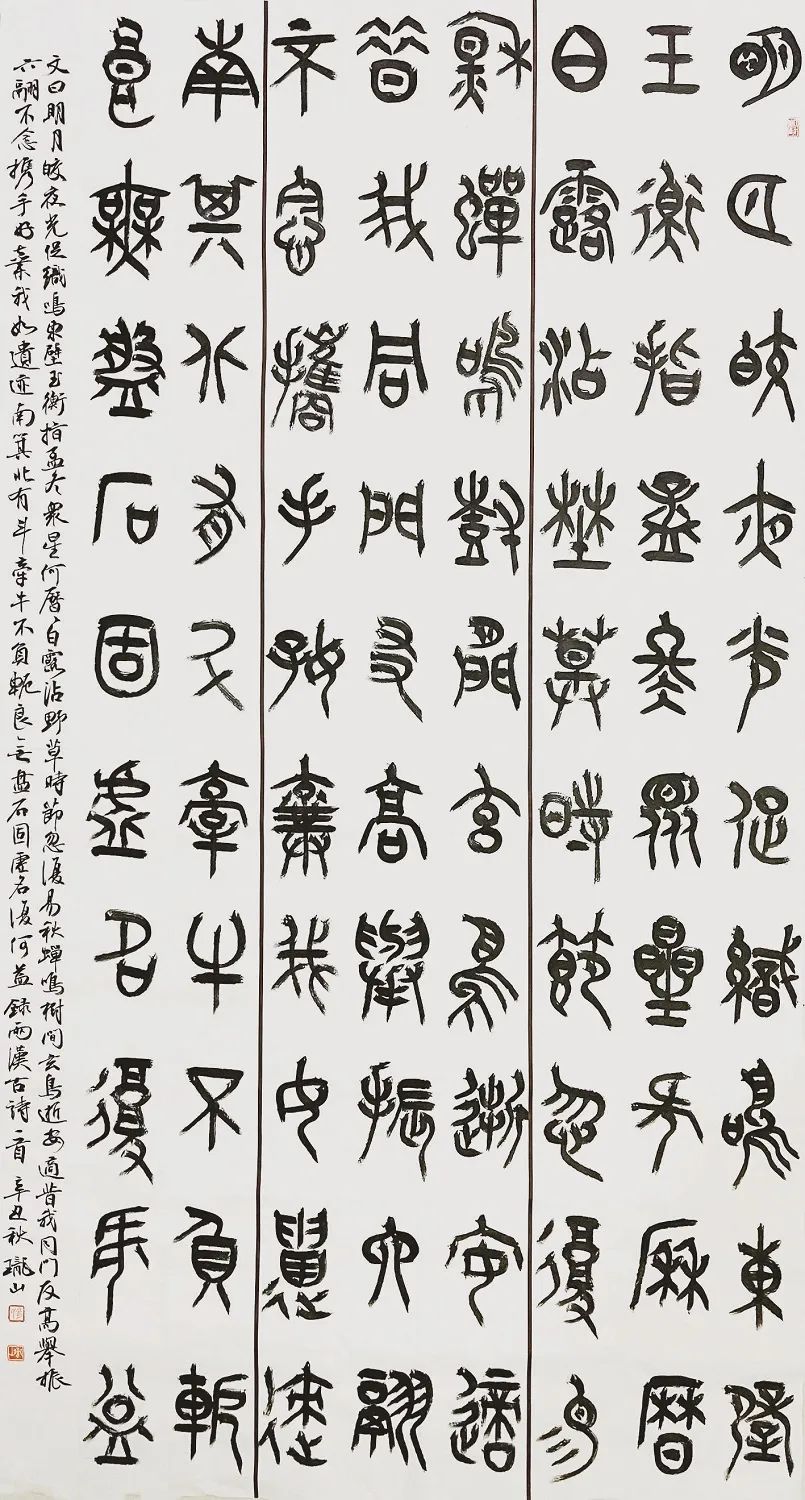 明月皎夜光促織鳴東壁
玉衡指孟冬眾星何厤曆
白露沾野草時節忽復易
秋蟬鳴樹間玄鳥逝安適
昔我同門友高舉振六翮
不念攜手好棄我如遺迹
南箕北有斗牽牛不負軛
良無盤石固虛名復何益
文曰明月皎夜光促織鳴東壁玉衡指孟冬衆星何曆〻白露沾野草時節忽復易秋蟬鳴樹間玄鳥逝安適昔我同門友高舉振
六翮不念攜手好棄我如遺迹南箕北有斗牽牛不負軛良無盤石固虛名復何益錄兩漢古詩一首 辛丑秋 瓏山